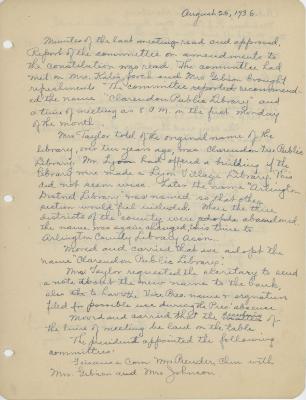 August 26, 1936.
Minutes of the last meeting read and approved.
Report of the committee on amendments to
the constitution was read. The committee had
met on Mrs. porch and Mrs Gibson brought
refreshments. The committee reported recommend-
ed the name "Clarendon Public Library" and
a time of meeting as 8 P.M. on the first Monday
of the month.
Mrs Taylor told of the original name of the
library, one ten years ago, was Clarendon Free Public
Library. Mr. Lyon had offered a building if the
library were made a Lyon Village Library. This
did not seem wise. Later the name "Arlington
District Library" was moved so that other
sections would feel included. When the three
districts of the county were abandoned
the name was again changed, this time to
Arlington County Library Assn.
Moved and carried that we adopt the
name "Clarendon Public Library".
Mrs Taylor requested the secretary to send
a note about the new name to the bank,
also to have the Vice Pres name + signature
filed for possible use during the Pres' absence
Moved and carried that the of
the time of meeting be laid on the table.
The president appointed the following
committees:
Finance Com Mrs Render, Chm with
Mrs. Gibson and Mrs Johnson